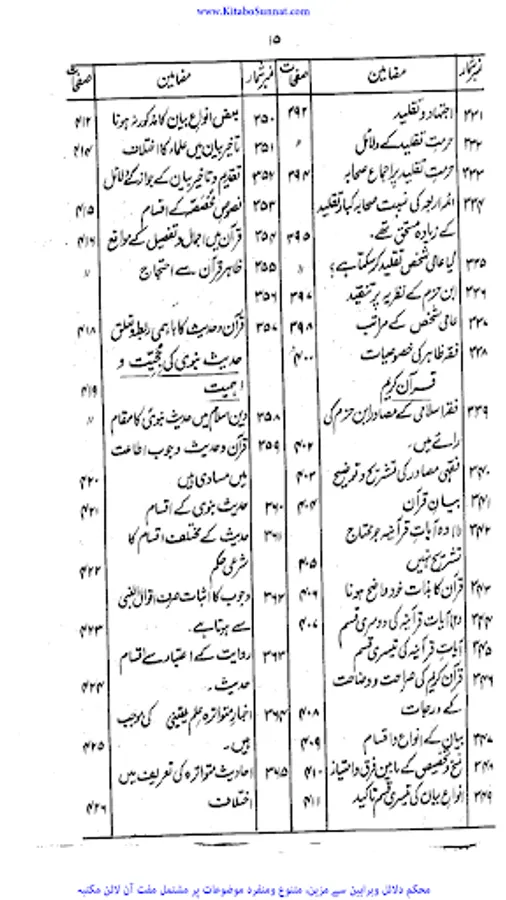 www.KitaboSunnat.com
۱۵
نمبر شمار مضامین صفحات
۳۳۱ اجتہاد و تقلید ۳۹۲
۳۳۲ حرمتِ تقلید کے دلائل 〃
۳۳۳ حرمتِ تقلید پر اجماع صحابہ ۳۹۴
۳۳۴ ائمہ اربعہ کی نسبت صحابہ کبار تقلید
کے زیادہ مستحق تھے۔ ۳۹۵
۳۳۵ کیا عامی شخص تقلید کر سکتا ہے؟ 〃
۳۳۶ ابن حزم کے نظریہ پر تنقید ۳۹۷
۳۳۷ عامی شخص کے مراتب ۳۹۸
۳۳۸ فقہ ظاہر کی خصوصیات ۴۰۰
قرآن کریم
۳۳۹ فقہ اسلامی کے مصادر ابن حزم کی
رائے میں۔ ۴۰۲
۳۴۰ فقہی مصادر کی تشریح و توضیح ۴۰۳
۳۴۱ بیانِ قرآن ۴۰۴
۳۴۲ (۱) وہ آیات قرآنیہ جو محتاج
تشریح نہیں ۴۰۵
۳۴۳ قرآن کا بذات خود واضح ہونا ۴۰۶
۳۴۴ (۲) آیات قرآنیہ کی دوسری قسم ۴۰۷
۳۴۵ آیاتِ قرآنیہ کی تیسری قسم
۳۴۶ قرآن کریم کی صراحت و وضاحت
کے درجات ۴۰۸
۳۴۷ بیان کے انواع و اقسام ۴۰۹
۳۴۸ نسخ و تخصیص کے مابین فرق و امتیاز ۴۱۰
۳۴۹ انواع بیان کی تیسری قسم تاکید ۴۱۱
نمبر شمار مضامین صفحات
۳۵۰ بعض انواع بیان کا مذکور نہ ہونا ۴۱۲
۳۵۱ تاخیر بیان میں علماء کا اختلاف ۴۱۴
۳۵۲ تقدیم و تاخیر بیان کے جواز کے دلائل
۳۵۳ نصوص مخصصہ کے اقسام ۴۱۵
۳۵۴ قرآن میں اجمال و تفصیل کے مواقع ۴۱۶
۳۵۵ ظاہر قرآن سے احتجاج 〃
۳۵۶
۳۵۷ قرآن و حدیث کا باہمی ربط و تعلق ۴۱۸
حدیث نبوی کی حجیّت و
اہمیت ۴۱۹
۳۵۸ دین اسلام میں حدیث نبوی کا مقام 〃
۳۵۹ قرآن و حدیث وجوب اطاعت
میں مساوی ہیں ۴۲۰
۳۶۰ حدیث نبوی کے اقسام ۴۲۱
۳۶۱ حدیث کے مختلف اقسام کا
شرعی حکم ۴۲۲
۳۶۲ وجوب کا اثبات صرف اقوال النبی
سے ہوتا ہے۔ ۴۲۳
۳۶۳ روایت کے اعتبار سے اقسام
حدیث۔ ۴۲۴
۳۶۴ اخبار متواترہ علم یقینی کی موجب
ہیں۔ ۴۲۵
۳۶۵ احادیث متواترہ کی تعریف میں
اختلاف ۴۲۶
محکم دلائل وبراہین سے مزین، متنوع ومنفرد موضوعات پر مشتمل مفت آن لائن مکتبہ